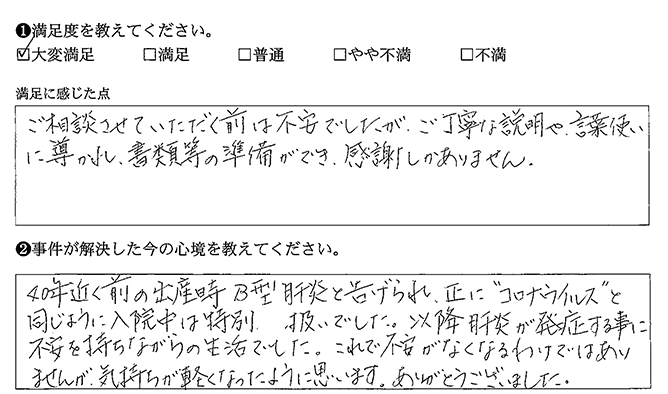 ❶満足度を教えてください。
☑大変満足 □満足 □普通 □やや不満 □不満
満足に感じた点
ご相談させていただく前は不安でしたが、ご丁寧な説明や、言葉使い
に導かれ、書類等の準備ができ、感謝しかありません。
❷事件が解決した今の心境を教えてください。
40年近く前の出産時B型肝炎と告げられ、正に"コロナウイルス"と
同じように入院中は特別 扱いでした。以降肝炎が発症する事に
不安を持ちながらの生活でした。これで不安がなくなるわけではあり
ませんが、気持ちが軽くなったように思います。ありがとうございました。